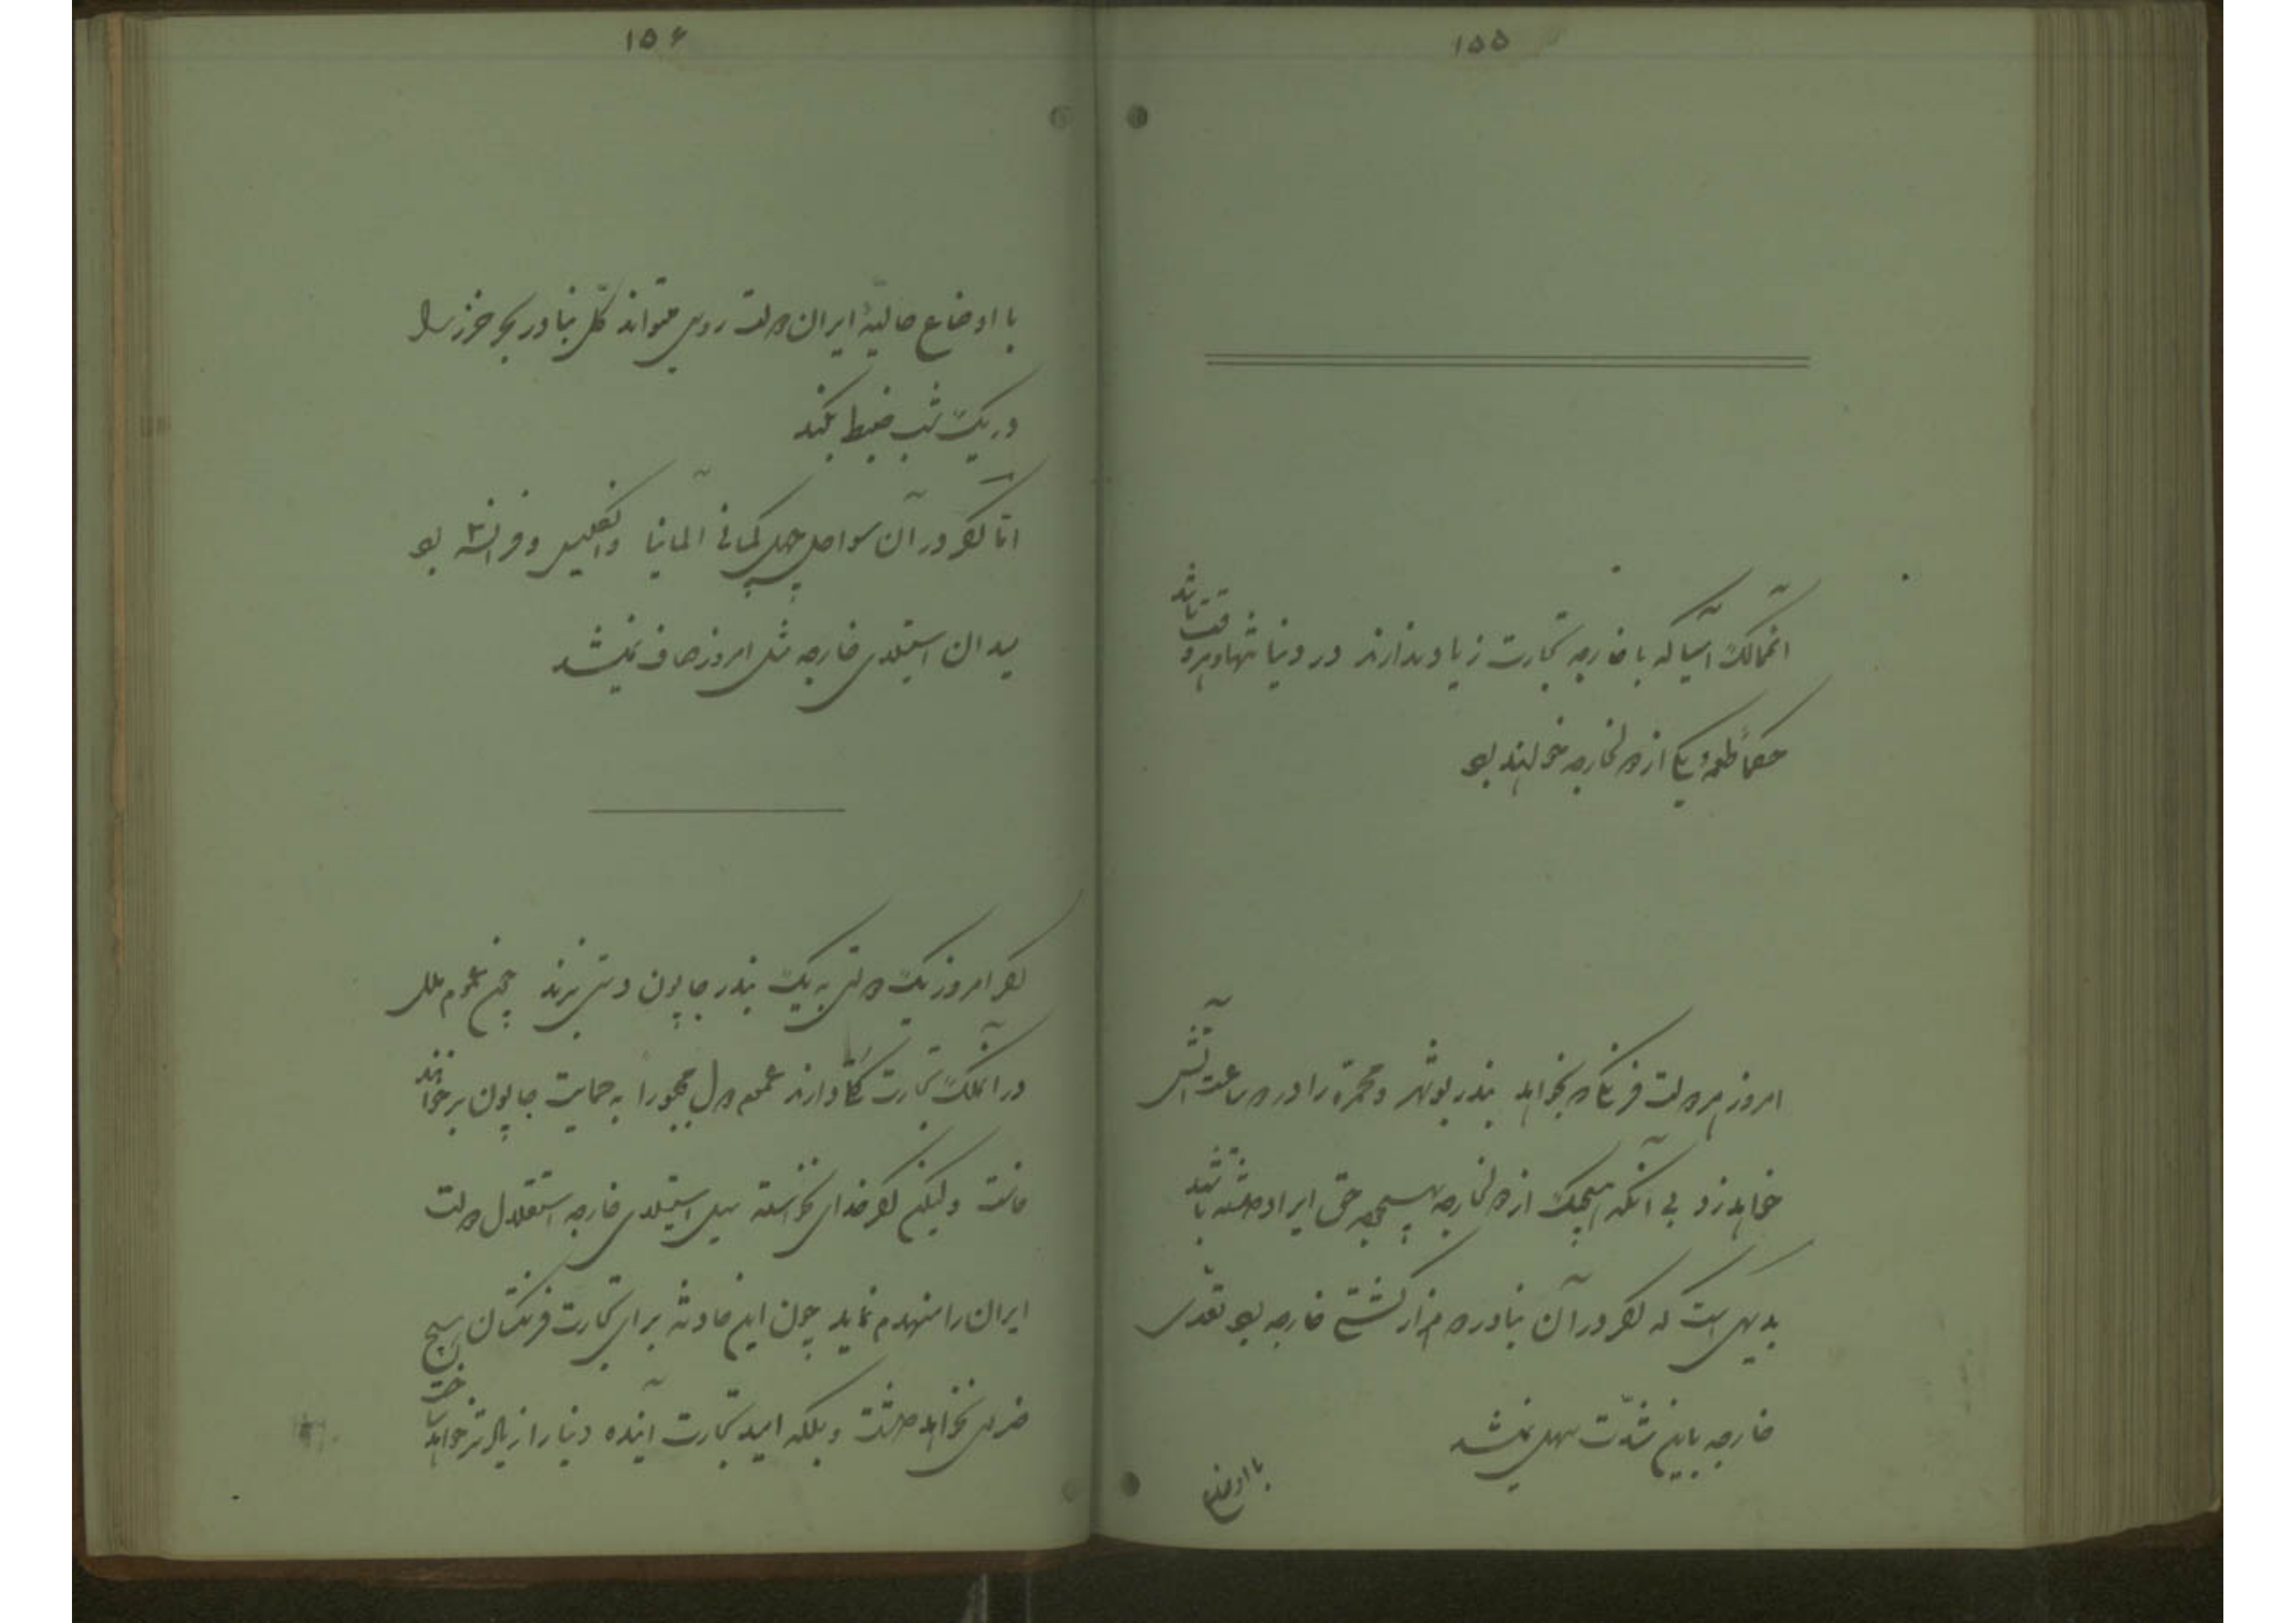 ۱۵۵
آنممالک آسیا که با خارجه تجارت زیاد ندارند در دنیا تنها و بی‌رفاقت باشد
حکماً طعمهٔ یکی از دول خارجه خواهند بود
امروز هر دولت فرنگ که بخواهد بندر بوشهر و محمره را در دو ساعت آتش
خواهد زد بی آنکه هیچیک از دول خارجه بهیچوجه حق ایراد داشته باشند
بدیهی است که اگر در آن بنادر دو هزار کشتی خارجه بود تعدّی
خارجه باین شدّت سهل نمیشد
با اوضاع
۱۵۶
با اوضاع حالیهٔ ایران دولت روس میتواند کلّ بنادر بحر خزر را
در یک شب ضبط بکند
امّا اگر در آن سواحل چهل کمپانی آلمانیا و انگلیس و فرانسه بود
میدان استیلای خارجه مثل امروز صاف نمیشد
اگر امروز یک دولتی به یک بندر جاپون دستی بزند چون عموم ملل
در آنملک تجارت کلّی دارند عموم دول مجبورا به حمایت جاپون برخواهند
خاست ولیکن اگر خدای نخواسته سیل استیلای خارجه استقلال دولت
ایران را منهدم نماید چون این حادثه برای تجارت فرنگستان هیچ
ضرری نخواهد داشت و بلکه امید تجارت آینده دنیا را زیادتر خواهد ساخت